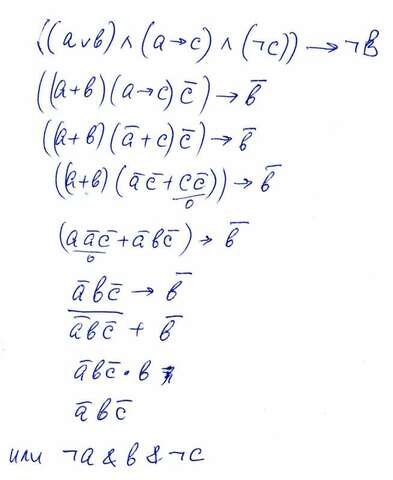 ((a∨b) ∧ (a→c) ∧ (¬c)) → ¬B
((a+b)(a→c) c̄) → b̄
((a+b)(ā+c) c̄) → b̄
((a+b)(āc̄+cc̄)) → b̄
0
(aāc̄+ābc̄) → b̄
0
ābc̄ → b̄
\overline{ābc̄} + b̄
ābc̄•b
ābc̄
или ¬a & b & ¬c